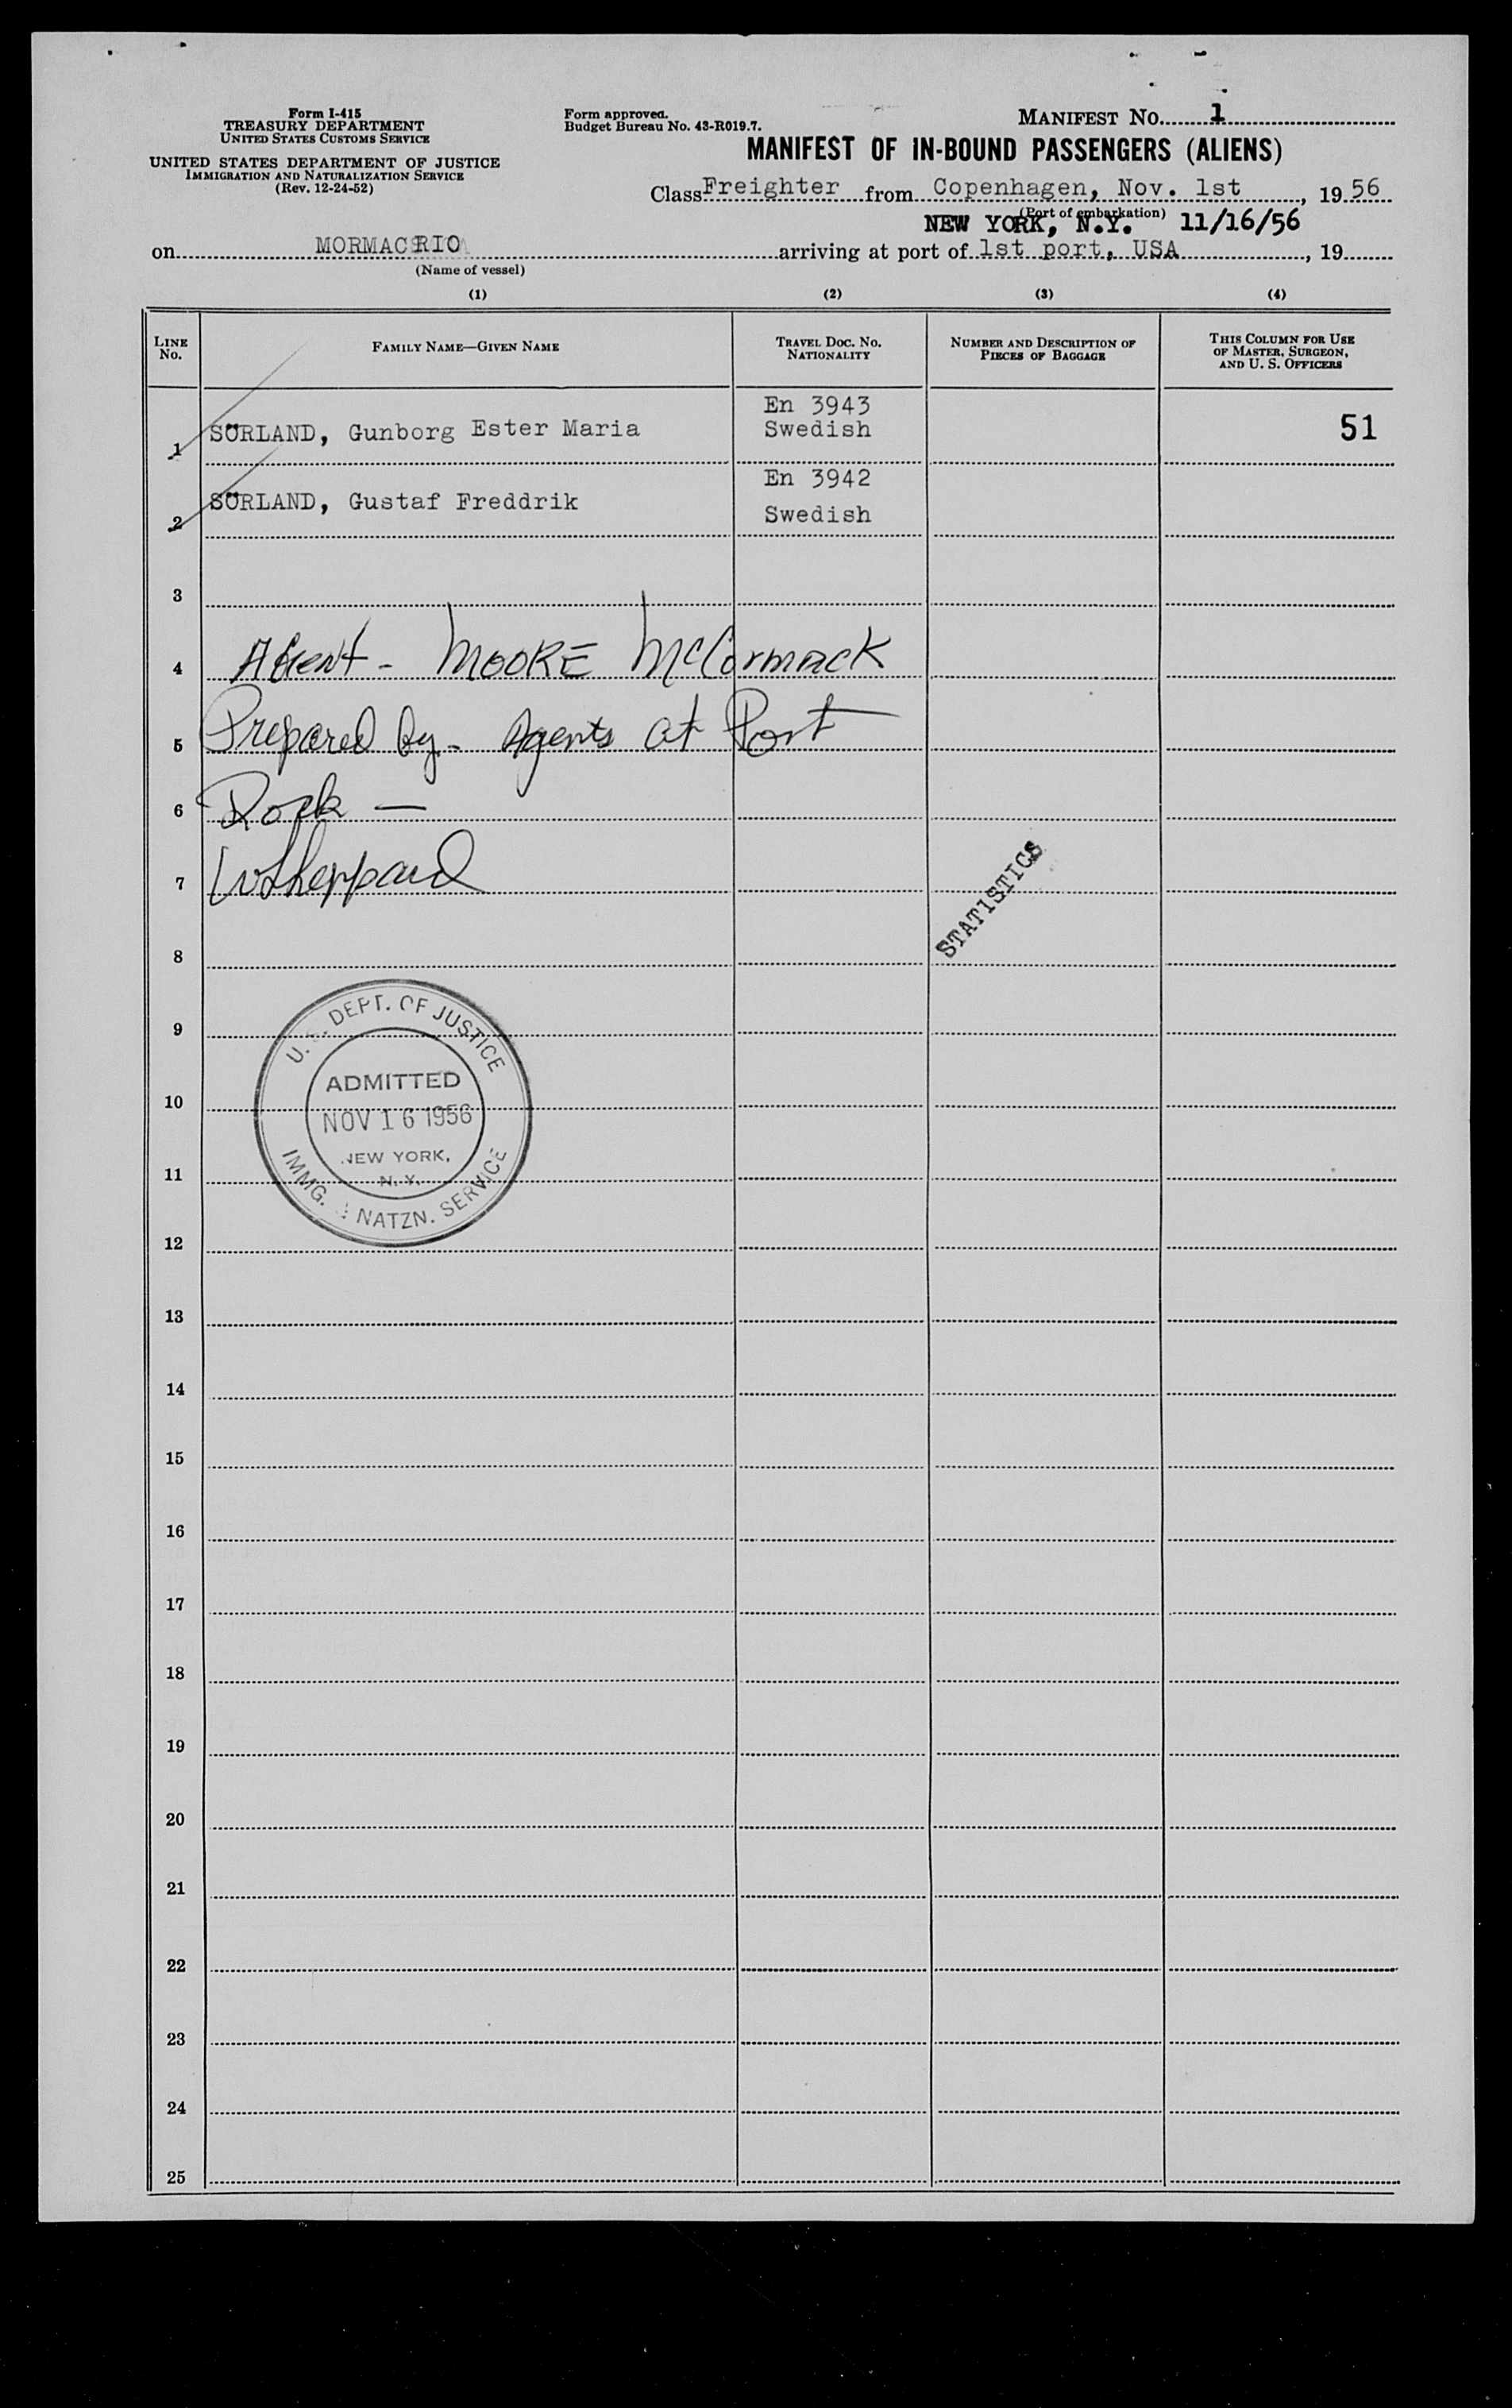 Form I-415
TREASURY DEPARTMENT
UNITED STATES CUSTOMS SERVICE
UNITED STATES DEPARTMENT OF JUSTICE
IMMIGRATION AND NATURALIZATION SERVICE
(Rev. 12-24-52)
Form approved.
Budget Bureau No. 43-R019.7.
MANIFEST NO. 1
MANIFEST OF IN-BOUND PASSENGERS (ALIENS)
Class Freighter from Copenhagen, Nov. 1st, 1956
(Port of embarkation)
NEW YORK, N.Y. 11/16/56
on MORMACRIO arriving at port of 1st port, USA, 19
(Name of vessel)
(1) (2) (3) (4)
LINE NO.
FAMILY NAME—GIVEN NAME
TRAVEL DOC. NO. NATIONALITY
NUMBER AND DESCRIPTION OF PIECES OF BAGGAGE
THIS COLUMN FOR USE OF MASTER, SURGEON, AND U. S. OFFICERS
En 3943
1 SÖRLAND, Gunborg Ester Maria Swedish 51
En 3942
2 SÖRLAND, Gustaf Freddrik
Swedish
3
4 Agent - MOORE McCormack
5 Prepared by - Agents at Port
6
7 Sheppard
STATISTICS
8
9
10
11
12
U. S. DEPT. OF JUSTICE
ADMITTED
NOV 16 1956
NEW YORK,
N. Y.
IMMG. & NATZN. SERVICE
13
14
15
16
17
18
19
20
21
22
23
24
25